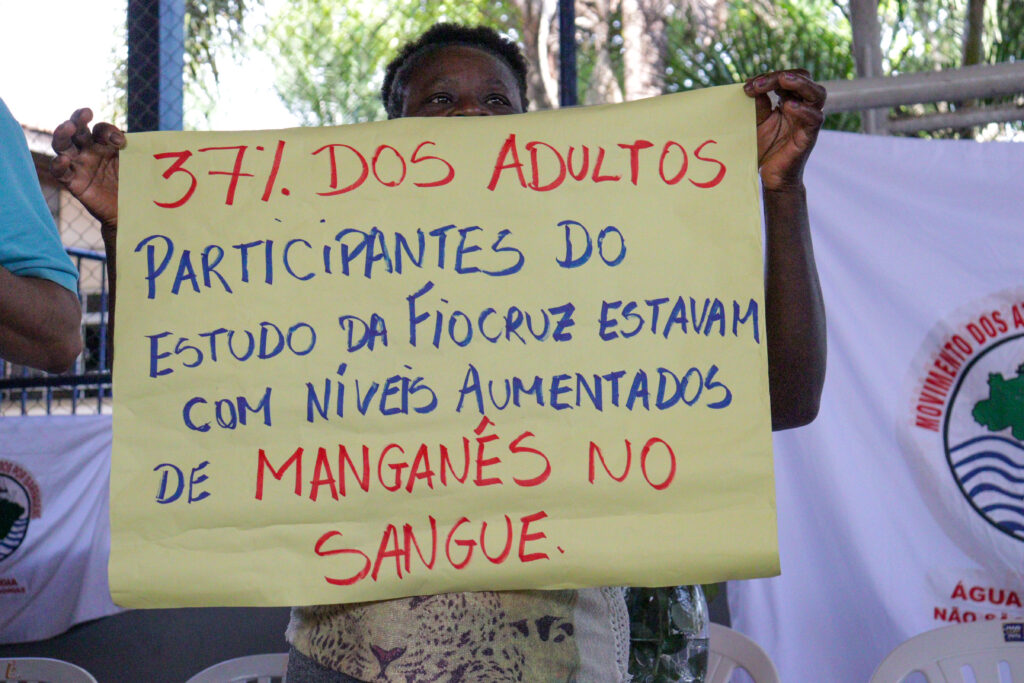 37% DOS ADULTOS
PARTICIPANTES DO
ESTUDO DA FIOCRUZ ESTAVAM
COM NÍVEIS AUMENTADOS
DE MANGANÊS NO
SANGUE.
MOVIMENTO DOS
ÁGUA
NÃO